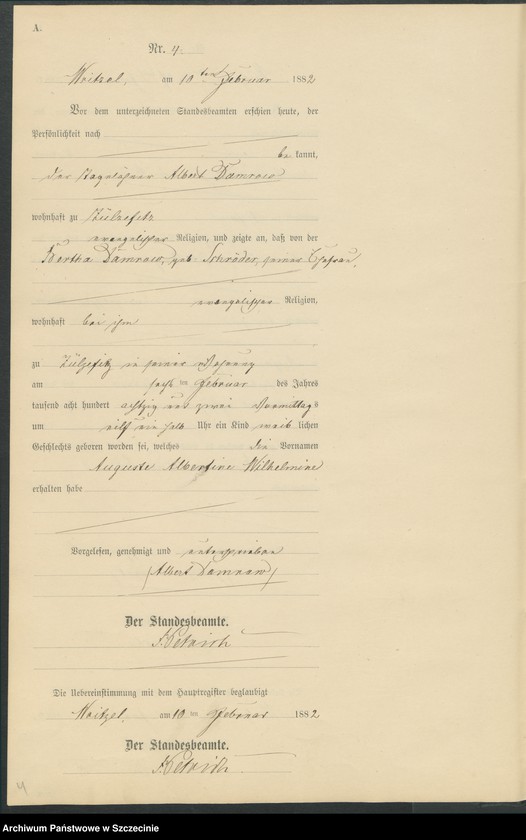 A.
Nr. 4.
Woitzel, am 10ten Februar 1882
Vor dem unterzeichneten Standesbeamten erschien heute, der
Persönlichkeit nach
be kannt,
der Tagelöhner Albert Damrow
wohnhaft zu Zülzefitz
evangelischer Religion, und zeigte an, daß von der
Bertha Damrow, geb Schröder, seiner Ehefrau,
evangelischer Religion,
wohnhaft bei ihm
zu Zülzefitz in seiner Wohnung
am sechsten Februar des Jahres
tausend acht hundert achtzig und zwei Vormittags
um elf ein halb Uhr ein Kind weib lichen
Geschlechts geboren worden sei, welches die Vornamen
Auguste Albertine Wilhelmine
erhalten habe
Vorgelesen, genehmigt und unterschrieben
(Albert Damrow)
Der Standesbeamte.
Die Uebereinstimmung mit dem Hauptregister beglaubigt
Woitzel, am 10 ten Februar 1882
Der Standesbeamte.
4
Archiwum Państwowe w Szczecinie